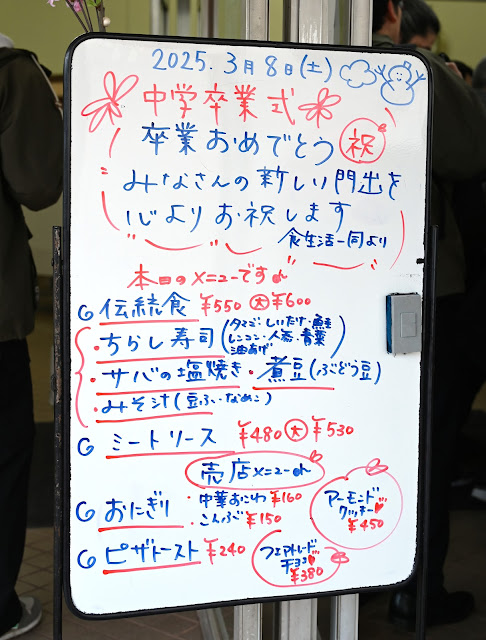 2025. 3月8日(土)
中学卒業式
卒業おめでとう 祝
みなさんの新しい門出を
心よりお祝します
食生活一同より
本日のメニューです
伝統食 ¥550 大 ¥600
・ちらし寿司(タマゴ・しいたけ・鮭
レンコン・人参・青菜
油あげ)
・サバの塩焼き・煮豆(ぶどう豆)
・みそ汁(豆ふ・なめこ)
ミートソース ¥480 大 ¥530
売店メニュー
おにぎり ・中華おこわ ¥160
・こんぶ ¥150
アーモンド
クッキー
¥450
ピザトースト ¥240
フェアトレード
チョコ
¥380